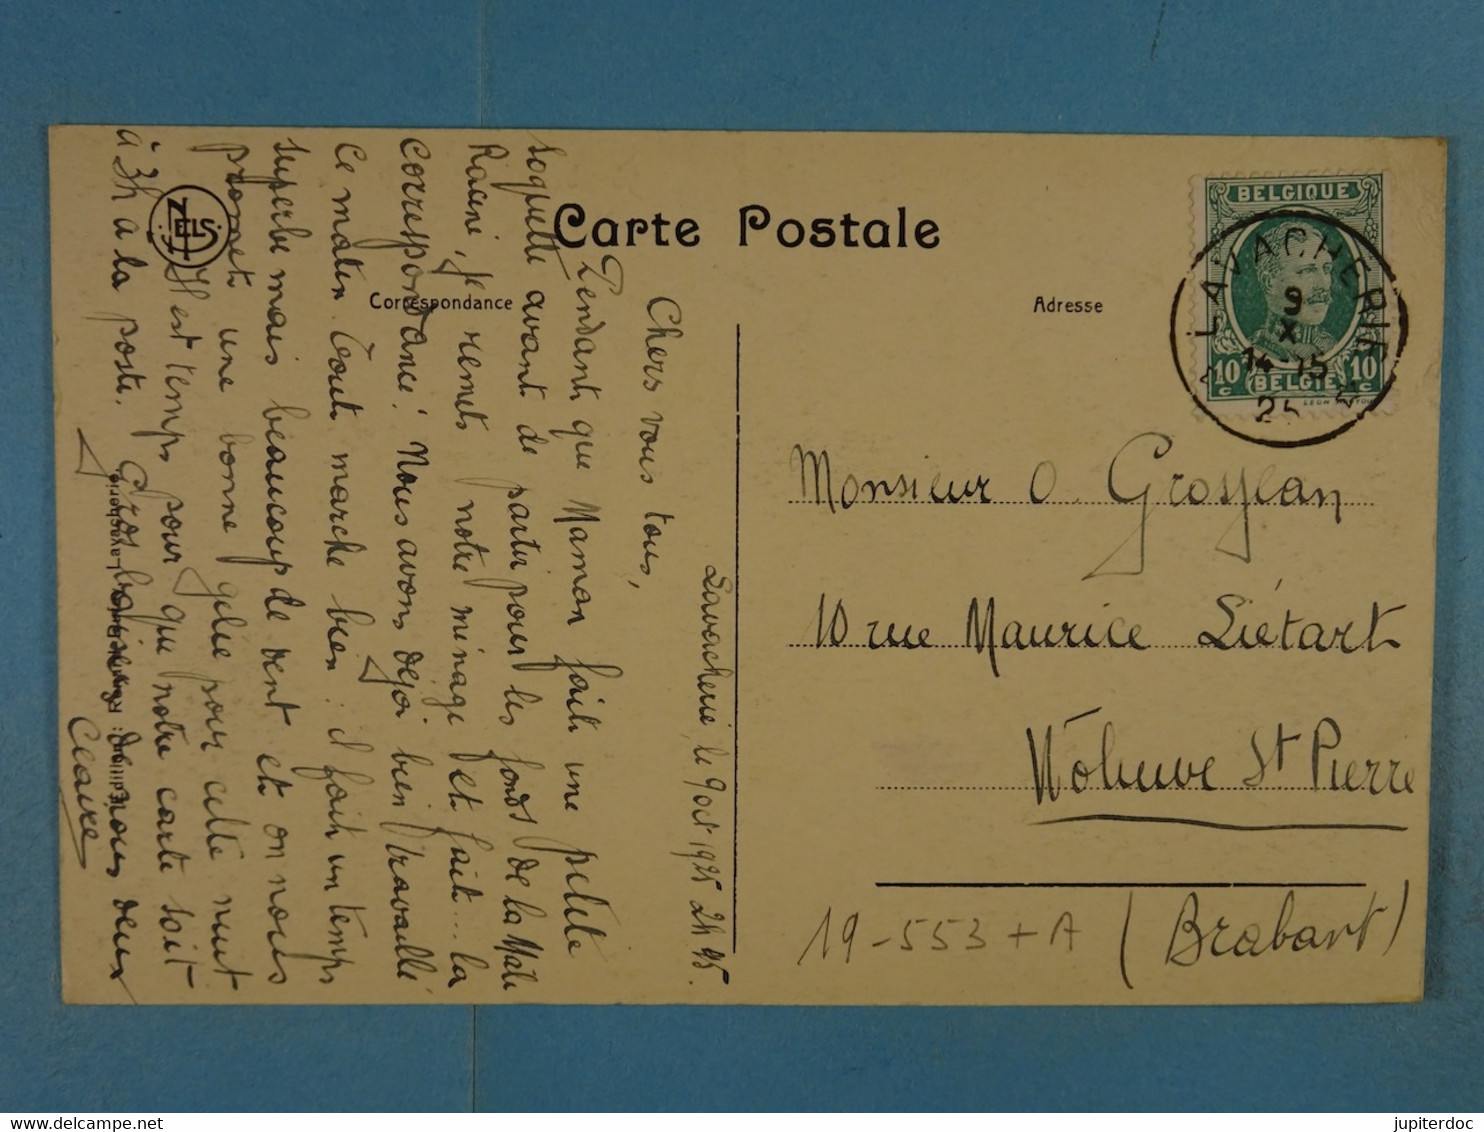 Carte Postale
Correspondance
Adresse
BELGIQUE
10 c
10 c
BELGIË
LAVACHERIE
9
X
14-15
25
NELS
Lavacherie, le 9 oct 1925 2h 45.
Chers vous tous,
Pendant que Maman fait une petite
soquette avant de partir pour les fonds de la Male
Racine, je remets notre ménage et fait... la
correspondance! Nous avons déjà bien travaillé
ce matin. Tout marche bien: il fait un temps
superbe mais beaucoup de vent et on nous
promet une bonne gelée pour cette nuit
Il est temps pour que notre carte soit
à 3h a la poste. Gros baisers de nous deux
Claire
Monsieur O. Grosjean
10 rue Maurice Liétart
Woluwe St Pierre
(Brabant)
19-553+A
jupiterdoc